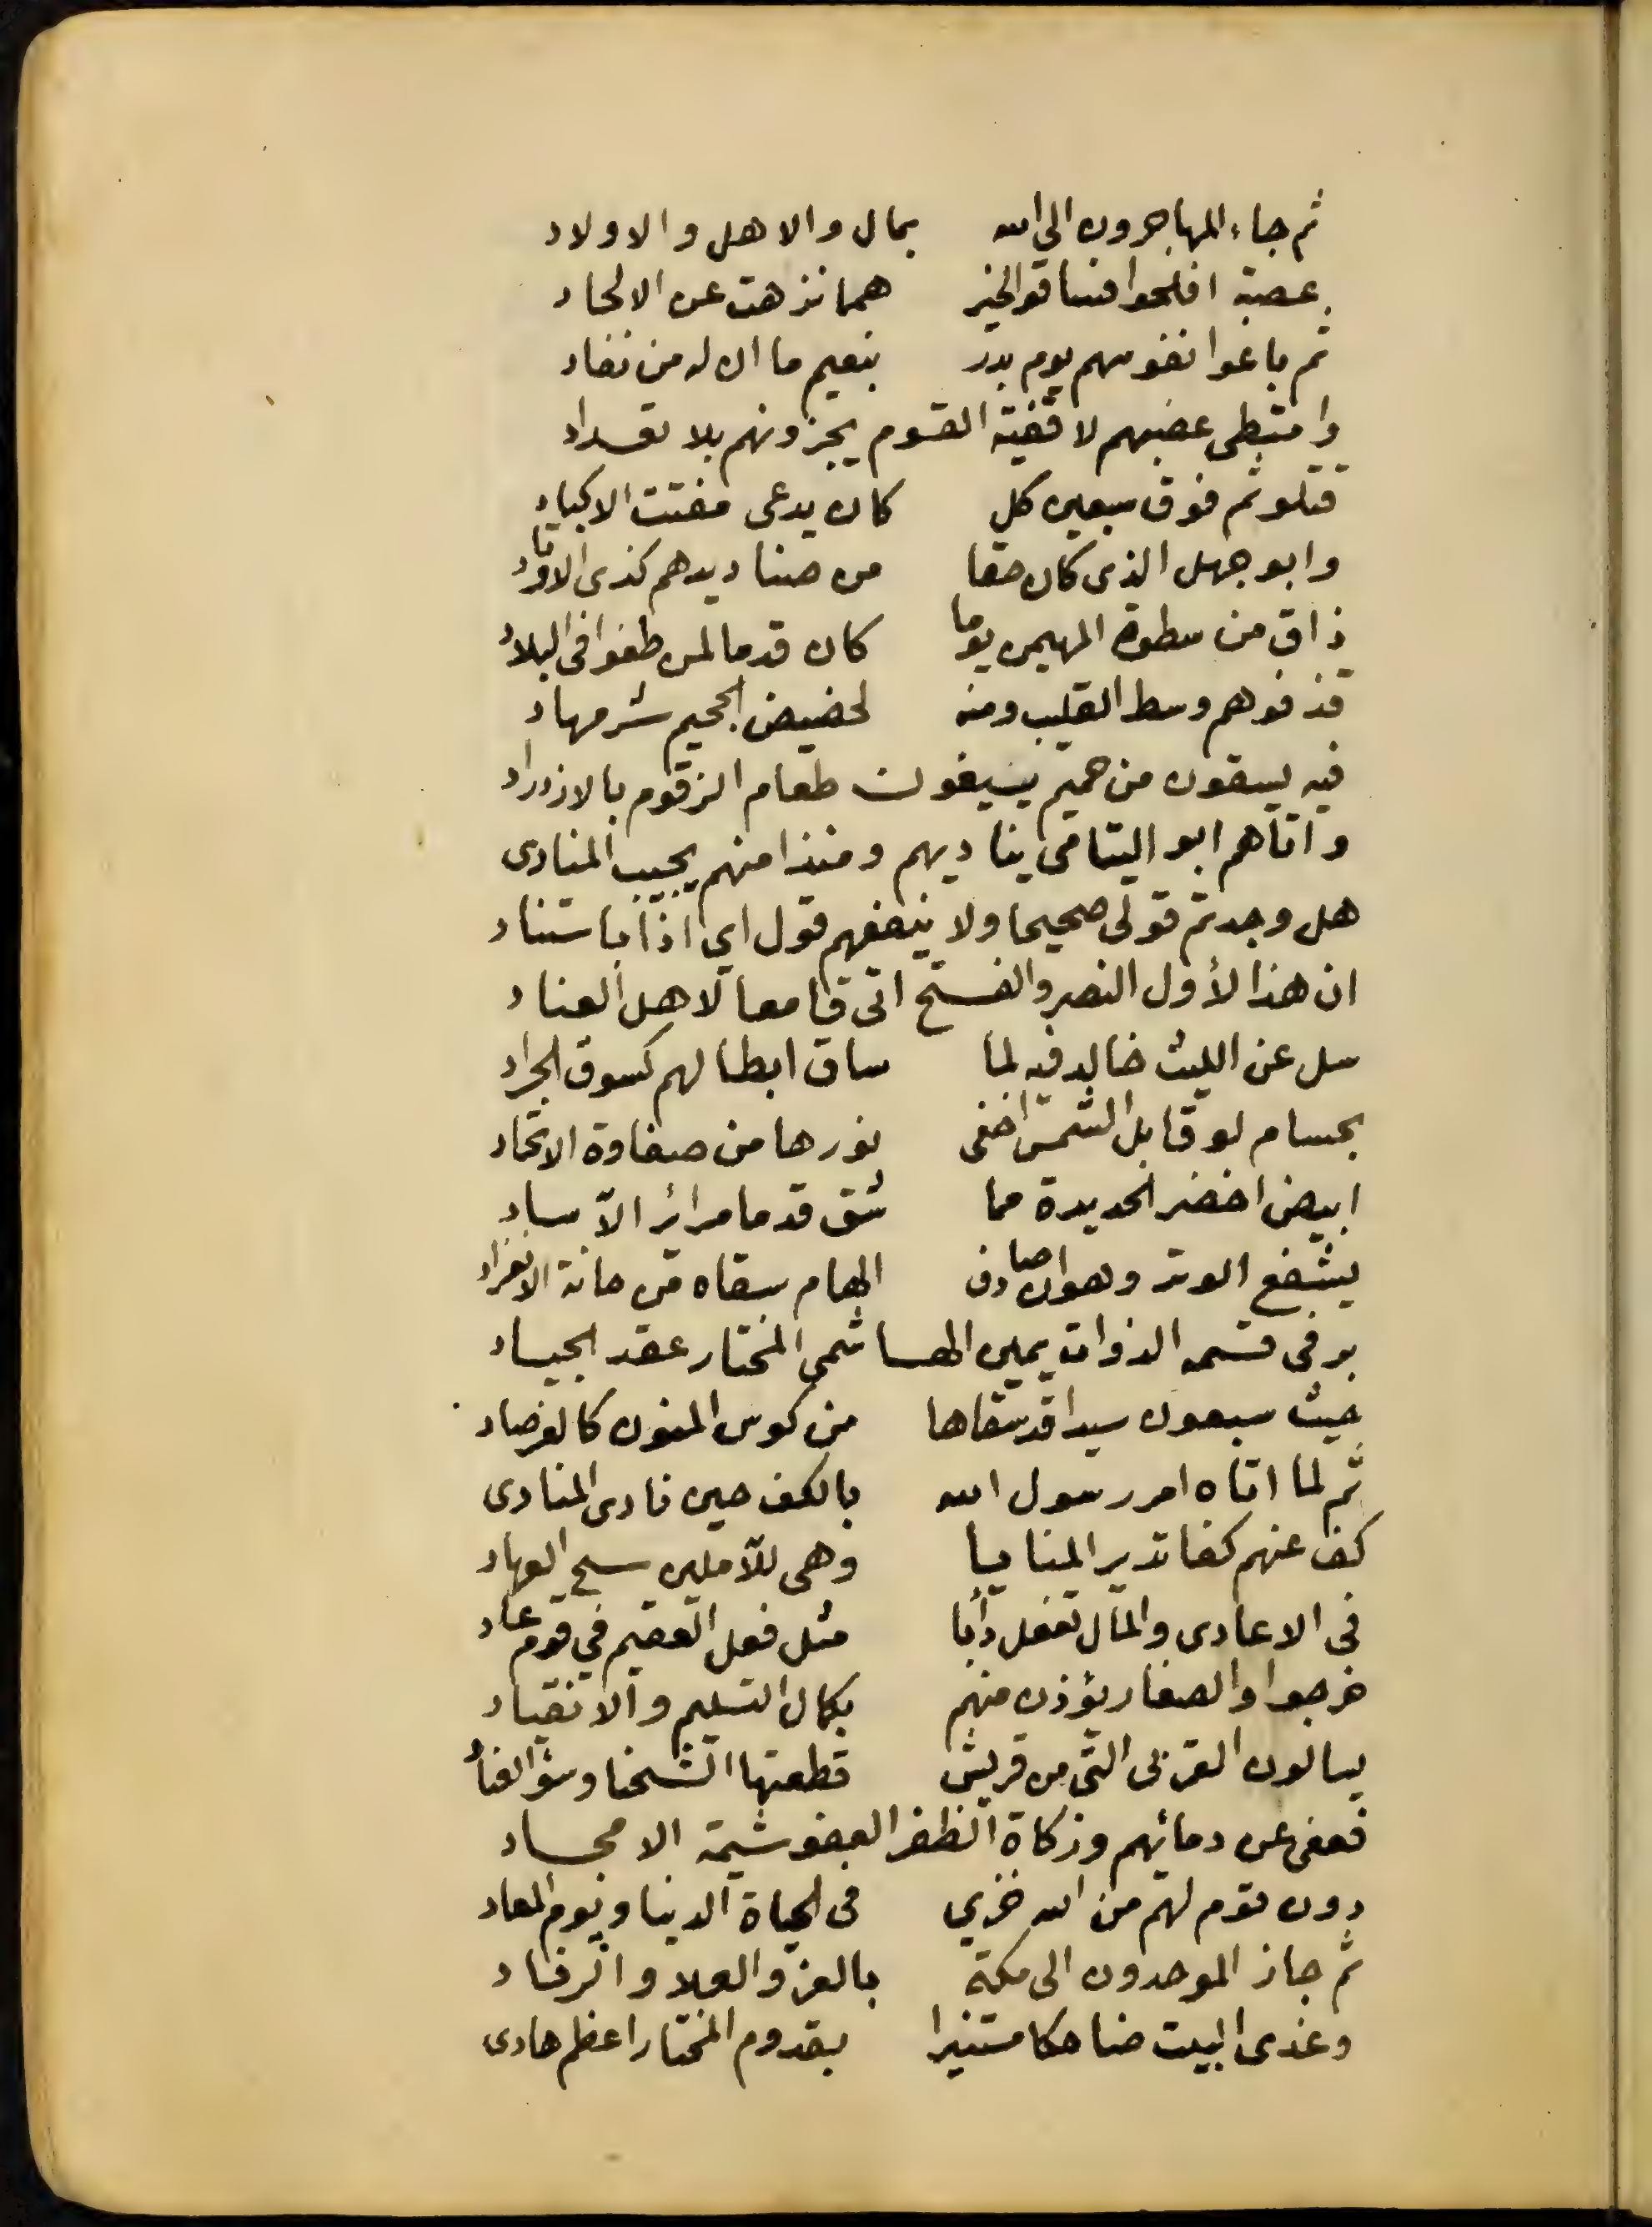 ثم جاء المهاجرون الي الله بمال والاهل والاولاد
عصبة افلحوا فساقوا لخير همما نزهت عن الالحاد
ثم باعوا نفوسهم يوم بدر بنعيم ما ان له من نفاد
وامتطى عضبهم لاقفية القوم يجزونهم بلا تعداد
قتلو ثم فوق سبعين كل كان يدعى مفتت الاكباد
وابو جهل الذى كان حقا من صناديدهم كذى الاوتاد
ذاق من سطوة المهيمن يوما كان قدما لمن طغوا فى البلاد
قذفوهم وسط القليب ومنه لحضيض الجحيم شر مهاد
فيه يسقون من حميم يسيغون طعام الزقوم بالازدراد
واتاهم ابو اليتامى يناديهم ومنذا منهم يجيب المنادى
هل وجدتم قولى صحيحا ولا ينفعهم قول اي اذا باستناد
ان هذا لأول النصر والفتح اتى قامعا لاهل العناد
سل عن الليث خالد فيه لما ساق ابطالهم كسوق الجراد
بحسام لو قابل الشمس اخفى نورها من صفاوة الاتحاد
ابيض اخضر الحديدة مما شق قدما مرائر الآساد
يشفع الوتر وهو ان صادف الهام سقاه من حانة الانفراد
بر فى قسمه الذوات يمين الهاشمى المختار عقد الجياد
حيث سبعون سيدا قد سقاها من كوس المنون كالفرصاد
ثم لما اتاه امر رسول الله بالكف حين نادى المنادى
كف عنهم كفا تدير المنايا وهى للآملين سح العهاد
فى الاعادى والمال تفعل دأبا مثل فعل العقيم في قوم عاد
خرجوا والصغار يؤذن منهم بكمال التسليم والانقياد
يسالون القربى التى من قريش قطعتها الشحنا وسؤ الفساد
فعفى عن دمائهم وزكاة الظفر العفو شيمة الامجاد
دون قوم لهم من الله خزي فى الحياة الدنيا ويوم المعاد
ثم جاز الموحدون الى مكة بالعز والعلا والرفاد
وغدى البيت ضاحكا مستنيرا بقدوم المختار اعظم هادى